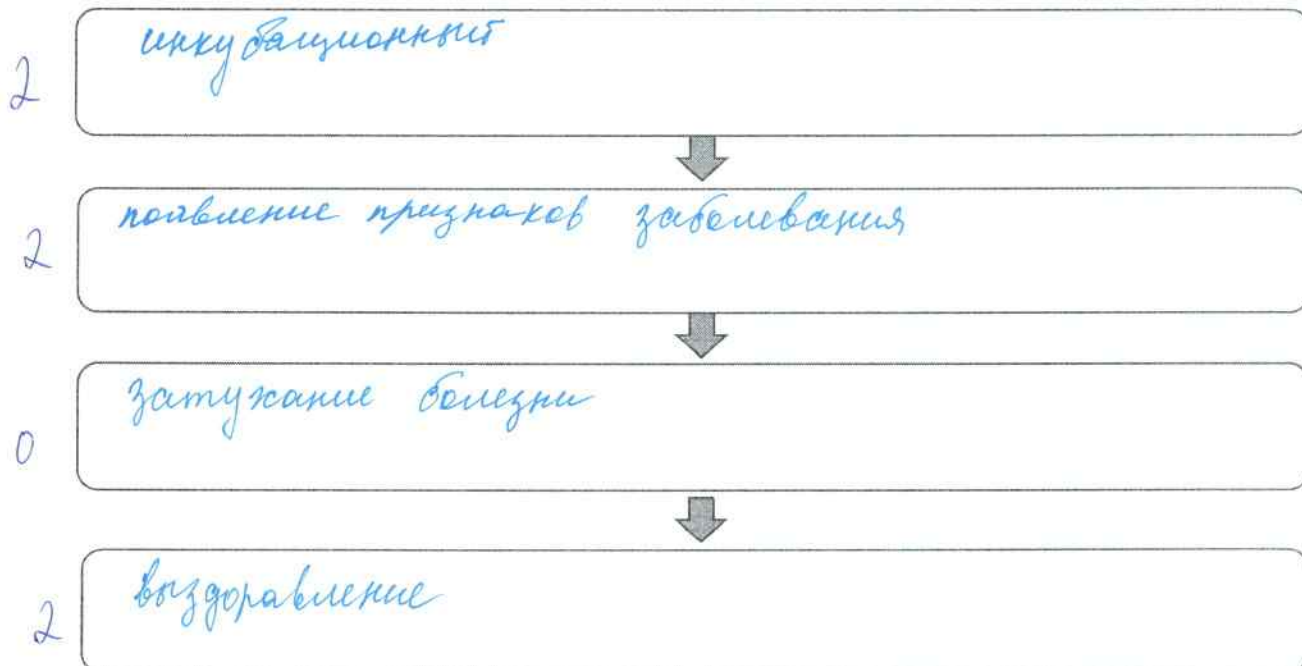 2 инкубационный
2 появление признаков заболевания
0 затухание болезни
2 выздоравление